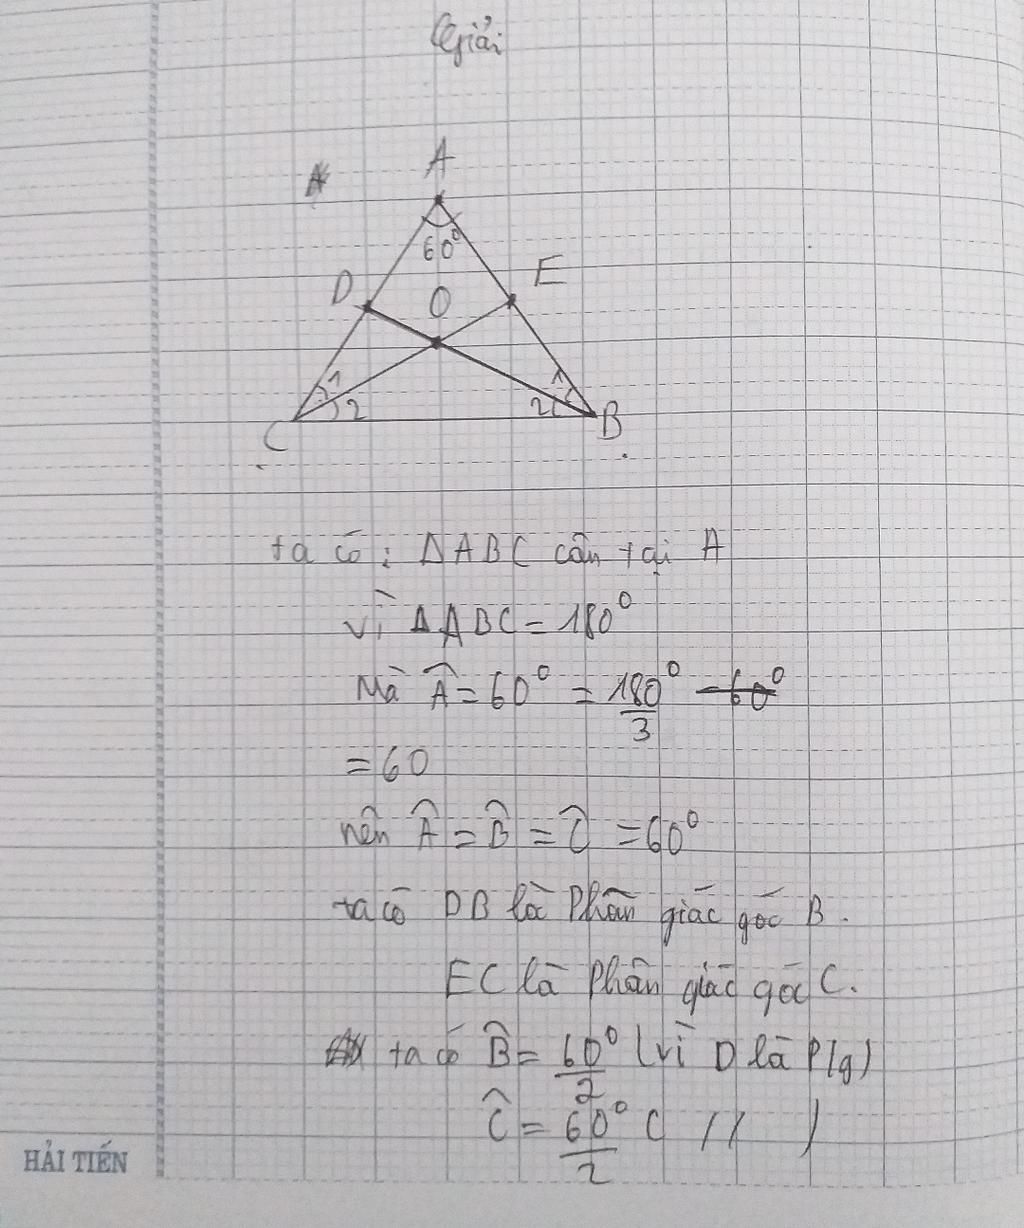 Giải
A
60°
D
O
E
1
2
1
2
C
B
ta có: ΔABC cân tại A
vì ΔABC = 180°
Mà Â = 60° = 180°/3
= 60
nên Â = B̂ = Ĉ = 60°
ta có DB là Phân giác góc B.
EC là Phân giác góc C.
ta có B̂ = 60°/2 (vì D là P/g)
Ĉ = 60°/2 ( // )
HẢI TIẾN